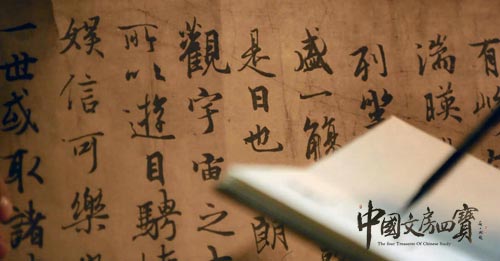 有
湍暎
列坐
盛一觴
是日也
朗
觀宇宙之
所以遊目騁
娛信可樂
一世或取諸
中國文房四寶
The four Treasures Of Chinese Study